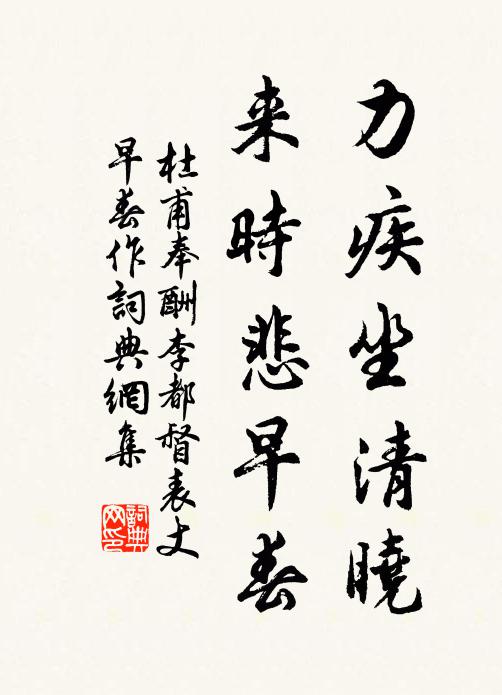 力疾坐清曉
来時悲早春
杜甫奉酬李都督表丈
早春作詞典網集
詞典
网印